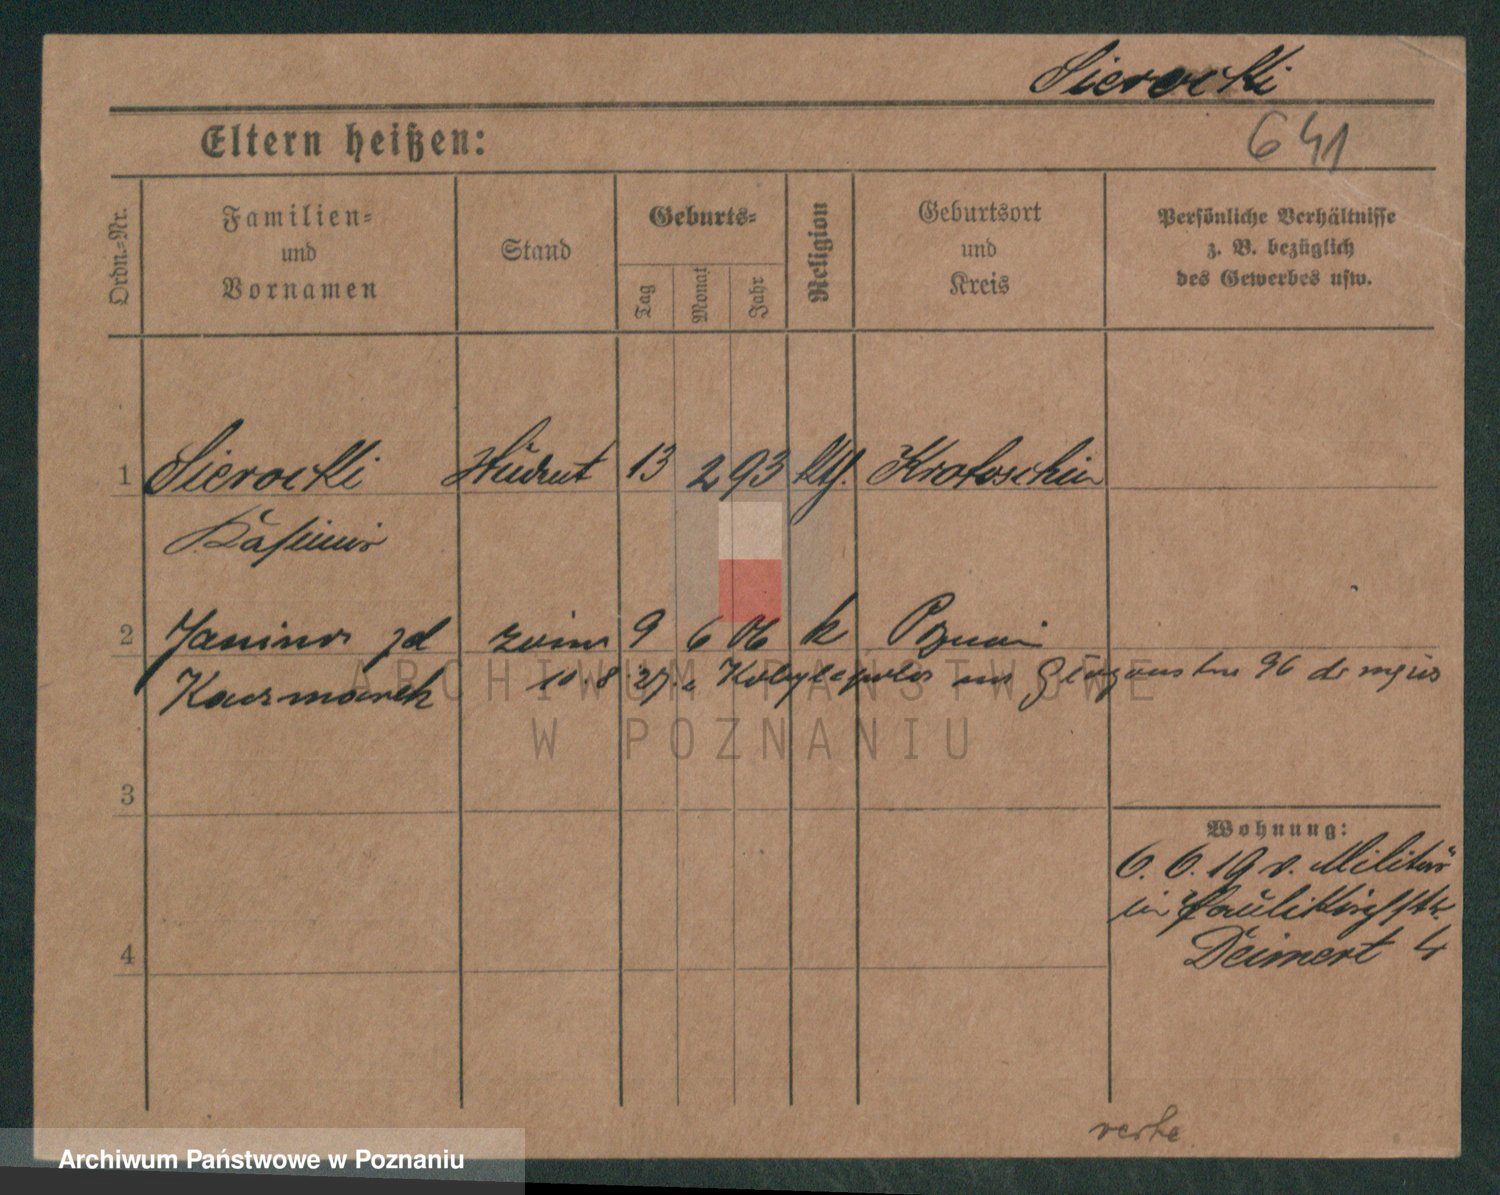 Sierocki
641
Eltern heißen:
Ordn.=Nr.
Familien=
und
Vornamen
Stand
Geburts=
Tag
Monat
Jahr
Religion
Geburtsort
und
Kreis
Persönliche Verhältnisse
z. B. bezüglich
des Gewerbes usw.
1 Sierocki Student 13 2 93 kth. Krotoschin
Kasimir
2 Janina zd żona 9 6 06 k Poznań
Kaczmarek 10.8.27. z Kobylepole
ARCHIWUM PAŃSTWOWE
W POZNANIU
3
Wohnung:
6. 6. 19 v. Militär
in Paulikirchstr.
Deimert 4
4
Archiwum Państwowe w Poznaniu